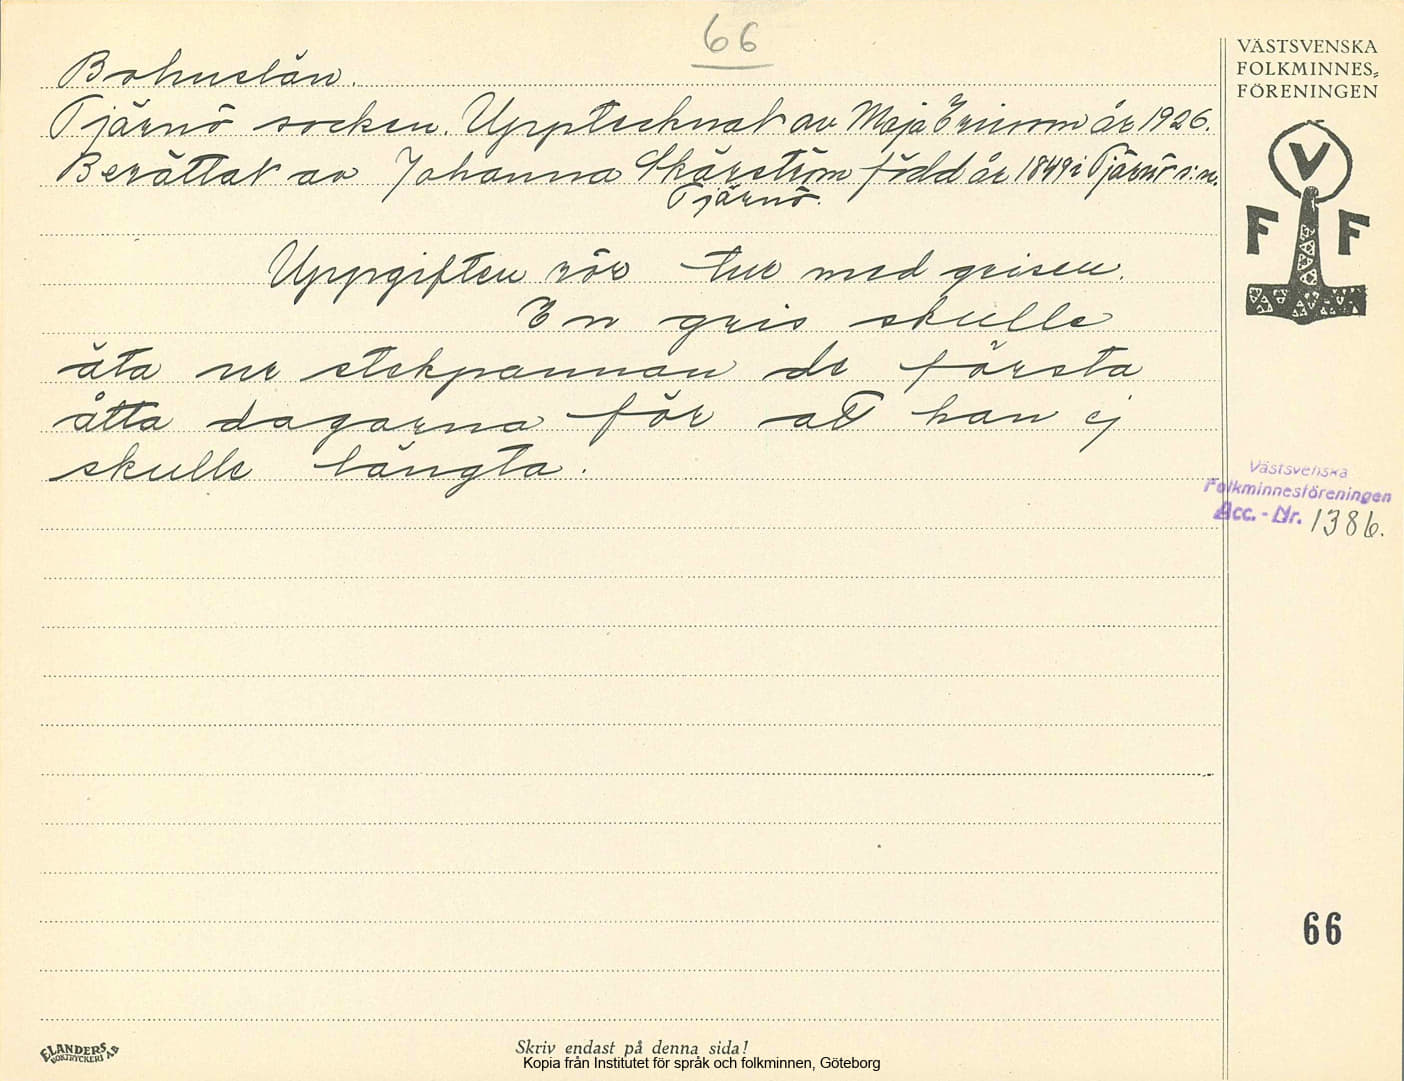 66
Bohuslän.
Tjärnö socken. Upptecknat av Maja Ericson år 1926.
Berättat av Johanna Skärström född år 1849 i Tjärnö s:n.
Tjärnö.
Uppgiften rör tur med grisen.
En gris skulle
äta ur stekpannan de första
åtta dagarna för att han ej
skulle längta.
VÄSTSVENSKA
FOLKMINNES=
FÖRENINGEN
V
F F
Västsvenska
Folkminnesföreningen
Acc. - Nr. 1386.
66
ELANDERS
BOKTRYCKERI AB
Skriv endast på denna sida!
Kopia från Institutet för språk och folkminnen, Göteborg